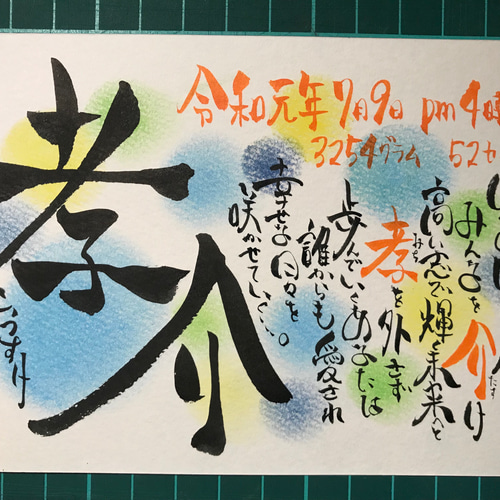 孝介
こうすけ
令和元年7月9日 pm 4時
3254グラム 52セ
みんなを介け
たす
高い志で輝く未来へと
孝を外さず
みち
歩んでいくあなたは
誰からも愛され
幸せな日々を
咲かせていく…。